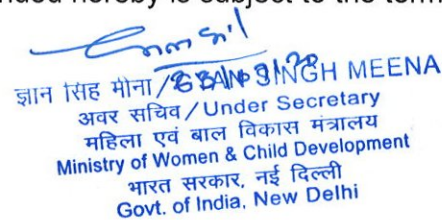 nded hereby is subject to the term
ज्ञान सिंह मीना / GYAN SINGH MEENA
अवर सचिव / Under Secretary
महिला एवं बाल विकास मंत्रालय
Ministry of Women & Child Development
भारत सरकार, नई दिल्ली
Govt. of India, New Delhi